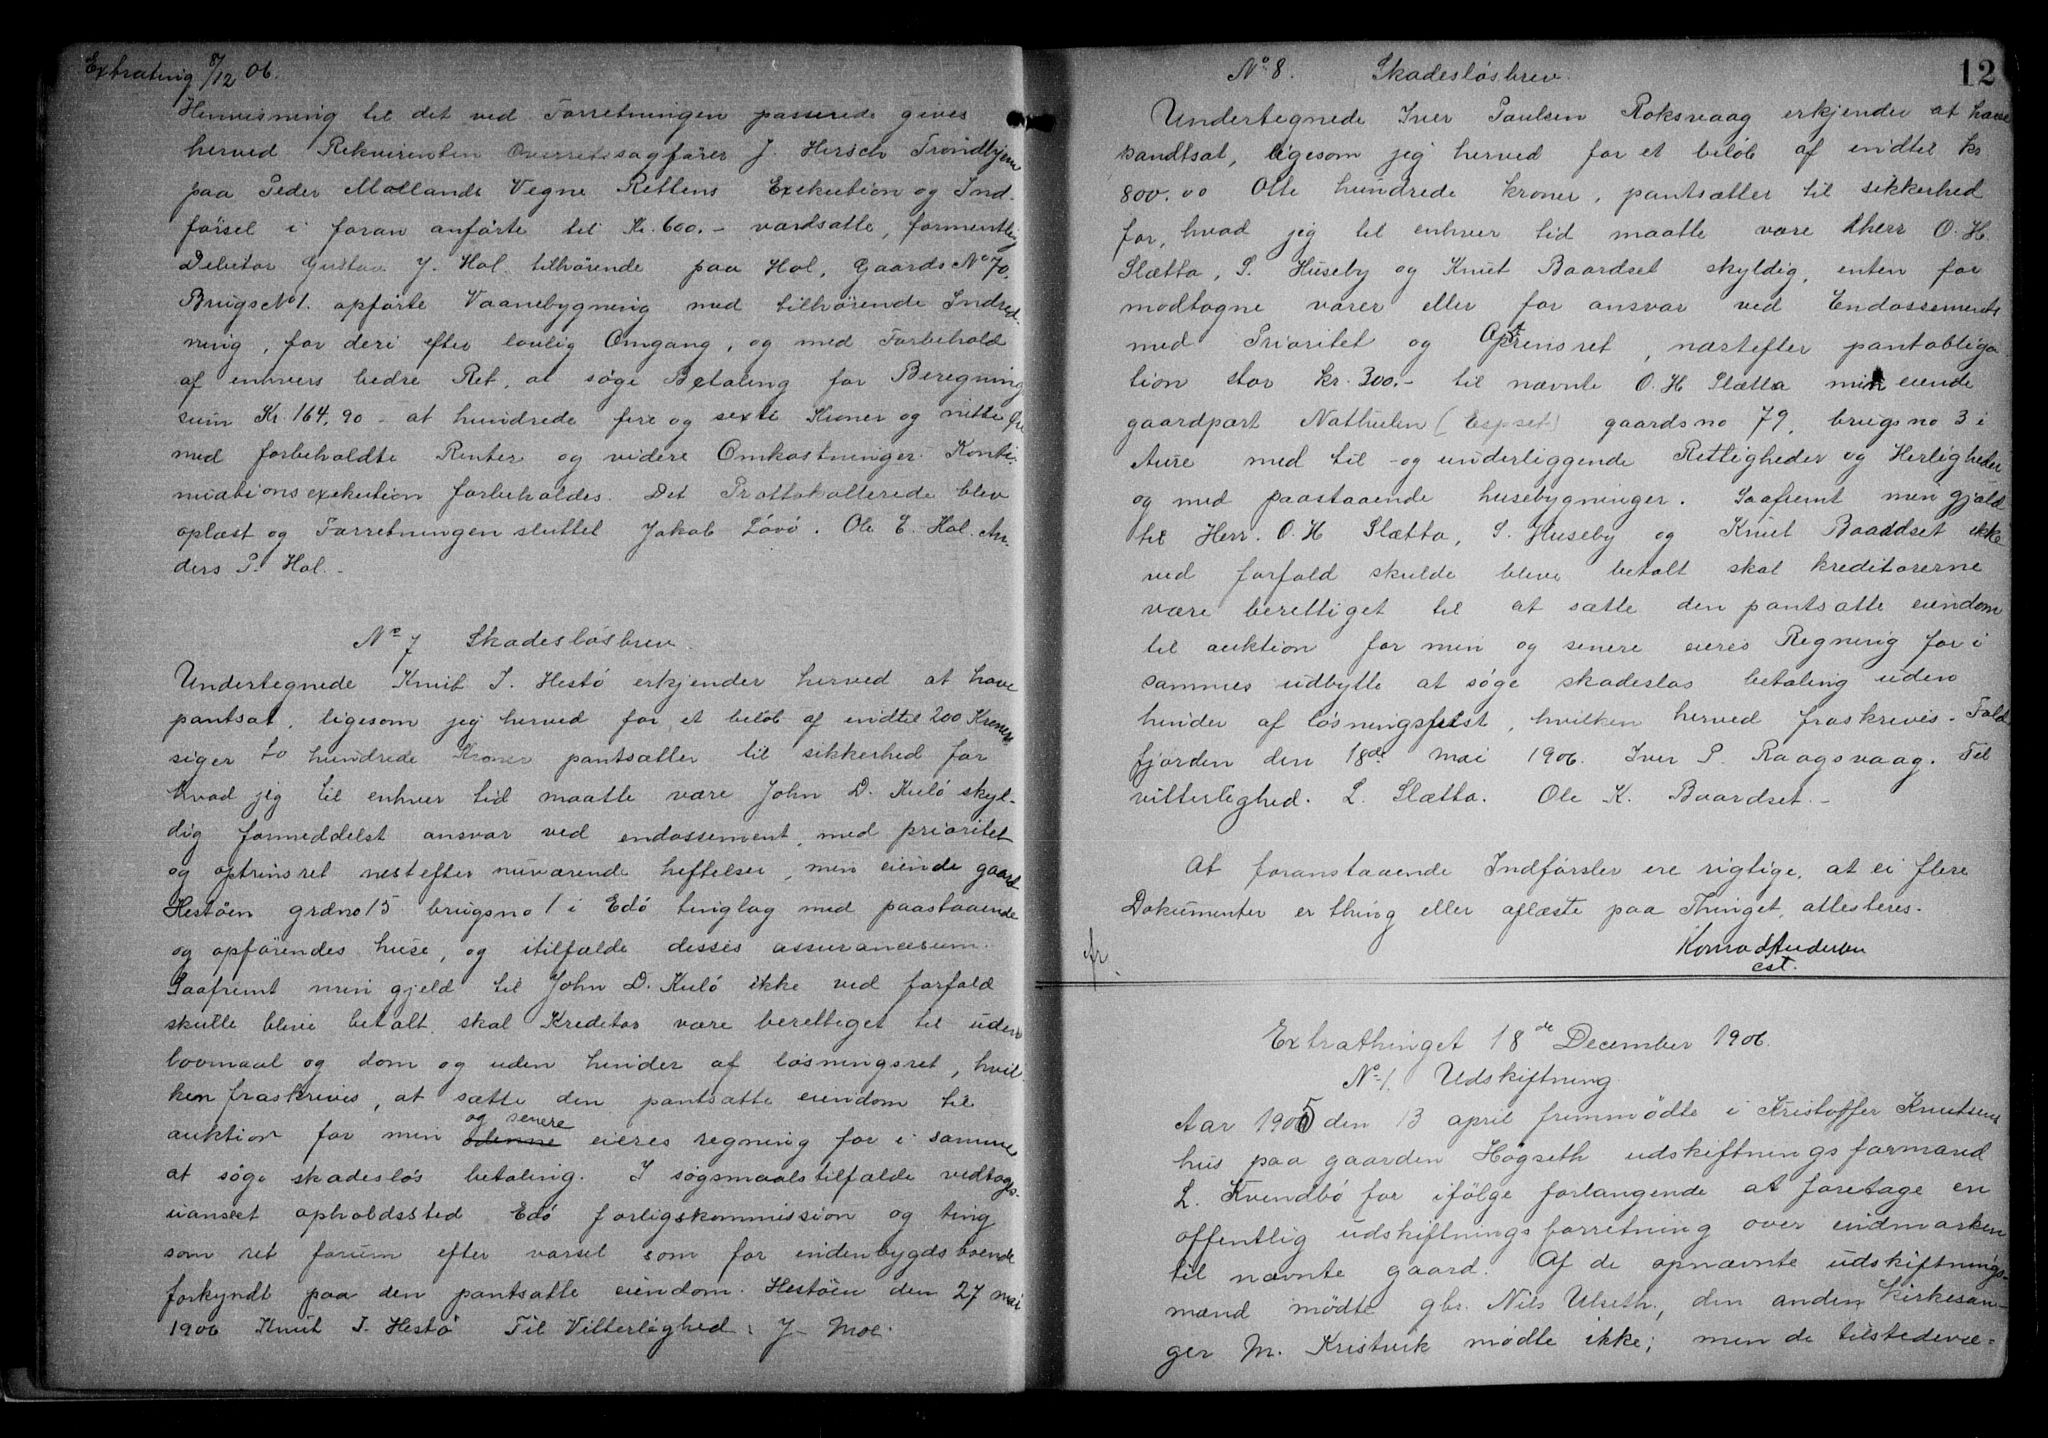 Extrating 8/12 06.
Henvisning til det ved Forretningen passerede gives
herved Rekvirenten Overretssagfører J. Hersch Trondhjem
paa Peder Mollands Vegne Rettens Exekution og Ind-
førsel i foran anførte til Kr. 600.- værdsatte, formentlig
Debitor Gustav J. Hol tilhørende paa Hol, Gaards No 70
Brugs No 1. opførte Vaanebygning med tilhørende Indred-
ning, for deri efter lovlig Omgang, og med Forbehold
af enhvers bedre Ret, at søge Betaling for Beregning
sum Kr. 164,90 - at hundrede fire og sexti Kroner og nitti
med forbeholdte Renter og videre Omkostninger. Konti-
nuationsexekution forbeholdes. Det Protokollerede blev
oplæst og Forretningen sluttet Jakob Løvø. Ole E. Hol. An-
ders P. Hol.-
No 7 Skadesløsbrev.
Undertegnede Knut I. Hestø erkjender herved at have
pantsat, ligesom jeg herved for et beløb af indtil 200 Kroner
siger to hundrede Kroner pantsætter til sikkerhed for
hvad jeg til enhver tid maatte være John D. Kulø skyl-
dig formeddelst ansvar ved endossement, med prioritet
og optrinsret nestefter nuværende heftelser, min eiende gaard
Hestøen grdno 15 brugsno 1 i Edø tinglag med paastaaende
og opførendes huse, og itilfælde disses assurancesum.
Saafremt min gjeld til John D. Kulø ikke ved forfald
skulle blive betalt, skal Kreditor være berettiget til uden
lovmaal og dom og uden hinder af løsningsret, hvil-
ken fraskrives, at sætte den pantsatte eiendom til
auktion for min og senere eieres regning for i samme
at søge skadesløs betaling. I søgsmaalstilfælde vedtages
uanset opholdssted Edø forligskommission og ting
som ret forum efter varsel som for indenbygdsboende
forkyndt paa den pantsatte eiendom. Hestöen den 27 mai
1906 Knut I. Hestø Til Vitterlighed: J. Moe.
No 8. Skadesløsbrev.
12
Undertegnede Iver Paulsen Roksvaag erkjender at have
pandtsat, ligesom jeg herved for et beløb af indtil kr
800.00 Otte hundrede kroner, pantsætter til sikkerhed
for, hvad jeg til enhver tid maatte være herr O. H.
Slætta, S. Huseby og Knut Baardset skyldig, enten for
modtagne varer eller for ansvar ved Endossements
med Prioritet og Optrinsret, næstefter pantobliga
tion stor kr. 300.- til nævnte O. H Slætta min eiende
gaardpart Nathulen (Espset) gaardsno 79, brugsno 3 i
Aure med til - og underliggende Rettigheder og Herligheder
og med paastaaende husebygninger. Saafremt min gjæld
til Herr. O. H Slætta, S. Huseby og Knut Baardset ikke
ved forfald skulde blive betalt skal kreditorerne
være berettiget til at sætte den pantsatte eiendom
til auktion for min og senere eieres Regning for i
sammes udbytte at søge skadesløs betaling uden
hinder af løsningsfrist, hvilken herved fraskrives. Fold
fjorden den 18de mai 1906. Iver P. Raagsvaag. Til
vitterlighed. L. Slætta. Ole K. Baardset.-
At foranstaaende Indførsler ere rigtige, at ei flere
Dokumenter er thing eller aflæste paa Thinget, attesteres.
Konrad Andersen
cst.
Extrathinget 18de December 1906.
No 1. Udskiftning
Aar 1905 den 13 april fremmødte i Kristoffer Knutsens
hus paa gaarden Høgseth udskiftningsformand
L. Kvendbø for ifølge forlangende at foretage en
offentlig udskiftningsforretning over indmarken
til nævnte gaard. Af de opnævnte udskiftnings-
mænd mødte gbr. Nils Ulseth, den anden Kirkesan-
ger M. Kristvik mødte ikke; men de tilstedevæ=